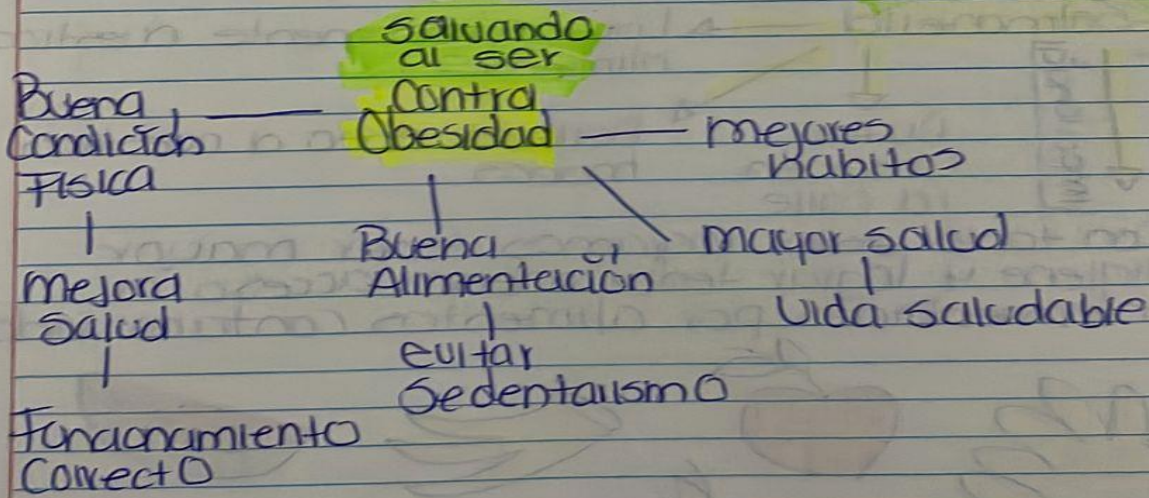 Salvando
al ser
Contra
Obesidad
Buena
Condición
Física
mejora
Salud
Funcionamiento
Correcto
Buena
Alimentación
evitar
Sedentarismo
mejores
habitos
mayor salud
Vida saludable